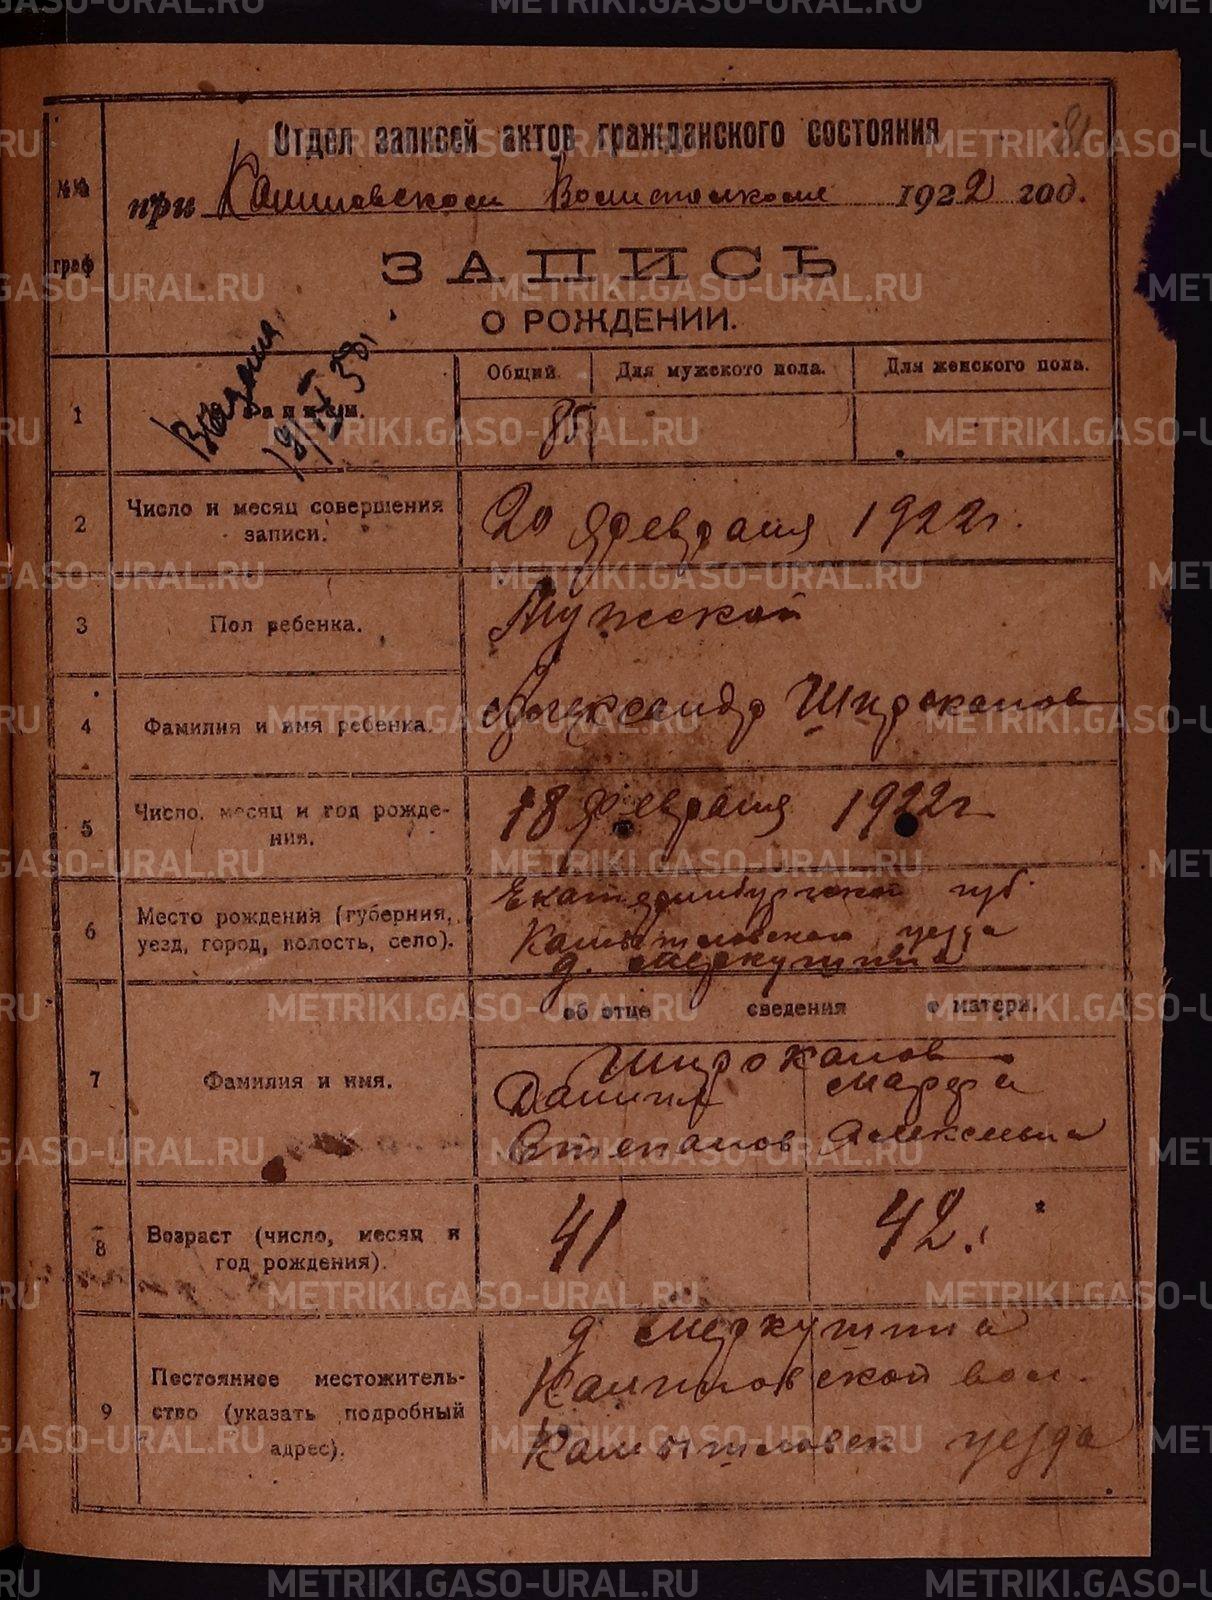 Отдел записей актов гражданского состояния
№№ граф
при Калиновском Волисполкоме 1922 год.
ЗАПИСЬ
О РОЖДЕНИИ.
Общий. Для мужского пола. Для женского пола.
1
85
2 Число и месяц совершения записи. 20 февраля 1922 г.
3 Пол ребенка. Мужской
4 Фамилия и имя ребенка. Александр Широканов
5 Число, месяц и год рождения. 18 февраля 1922 г
6 Место рождения (губерния, уезд, город, волость, село). Екатеринбургской губ
Камышловского уезда
д.
об отце сведения о матери.
7 Фамилия и имя. Широканов
Даниил Марфа
Степанов Алексеевна
8 Возраст (число, месяц и год рождения). 41 42.
9 Постоянное местожительство (указать подробный адрес).
д
Калиновской вол.
Камышловск уезда
METRIKI.GASO-URAL.RU